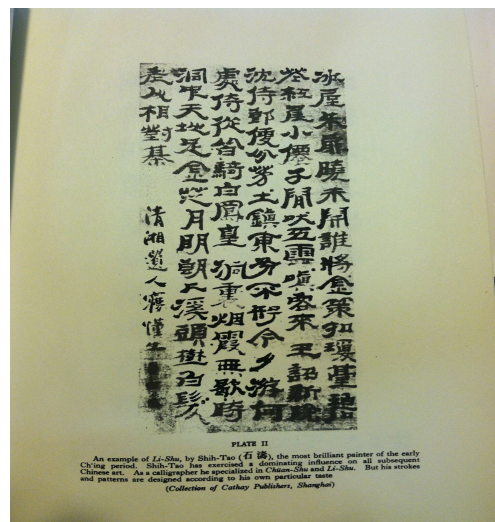 冰屋朱扉曉未開誰將金策扣瓊臺 碧
花紅尾小僊子閒吠五雲嗔客來 王詔新除
沈侍郎便分茅土鎮東方 今夕游何
處侍從皆騎白鳳皇 洞裏烟霞無歇時
洞中天地足金芝月明朝 溪頭樹白髮
老人相對棊
清湘遺人
PLATE II
An example of Li-Shu, by Shih-Tao (石濤), the most brilliant painter of the early
Ch'ing period. Shih-Tao has exercised a dominating influence on all subsequent
Chinese art. As a calligrapher he specialized in Chüan-Shu and Li-Shu. But his strokes
and patterns are designed according to his own particular taste
(Collection of Cathay Publishers, Shanghai)